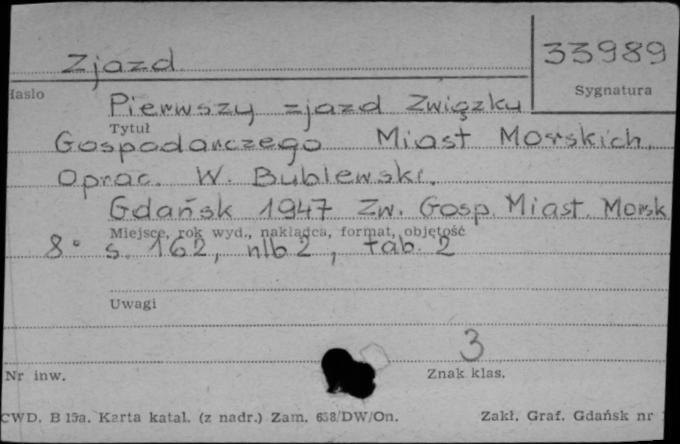 Zjazd
33989
Hasło
Sygnatura
Pierwszy zjazd Związku
Tytuł
Gospodarczego Miast Morskich.
Oprac. W. Bublewski.
Gdańsk 1947 Zw. Gosp. Miast. Morsk
Miejsce, rok wyd., nakładca, format, objętość
8° s. 162, nlb 2, tab. 2
Uwagi
3
Nr inw.
Znak klas.
CWD. B 15a. Karta katal. (z nadr.) Zam. 638/DW/On.
Zakł. Graf. Gdańsk nr